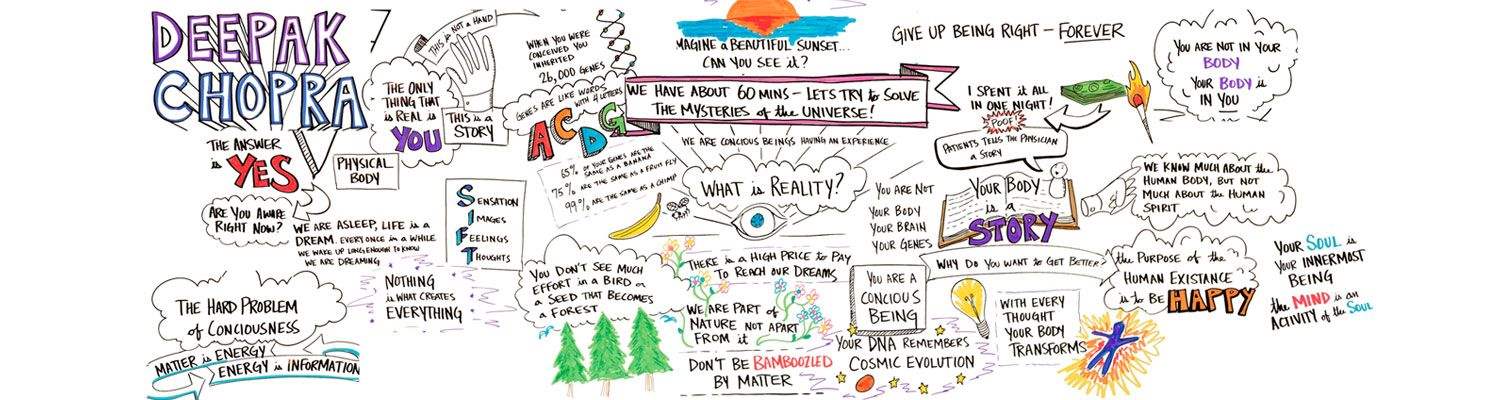 DEEPAK
CHOPRA
THE ANSWER
is YES
ARE YOU AWARE
RIGHT NOW?
PHYSICAL
BODY
WE ARE ASLEEP, LIFE is a
DREAM. EVERY ONCE IN A WHILE
WE WAKE UP LONG ENOUGH TO KNOW
WE ARE DREAMING
THE HARD PROBLEM
of CONCIOUSNESS
MATTER is ENERGY
ENERGY is INFORMATION
THE ONLY
THING THAT
is REAL is
YOU
THIS is NOT a HAND
THIS is a
STORY
SENSATION
IMAGES
FEELINGS
THOUGHTS
NOTHING
is WHAT CREATES
EVERYTHING
WHEN YOU WERE
CONCEIVED YOU
INHERITED
26,000 GENES
GENES ARE LIKE WORDS
WITH 4 LETTERS
ACDG
65% OF YOUR GENES ARE THE
SAME AS A BANANA
75% ARE THE SAME AS A FRUIT FLY
99% ARE THE SAME AS A CHIMP
YOU DON'T SEE MUCH
EFFORT IN a BIRD or
a SEED THAT BECOMES
a FOREST
MAGINE a BEAUTIFUL SUNSET...
CAN YOU SEE it?
WE HAVE ABOUT 60 MINS – LETS TRY to SOLVE
THE MYSTERIES of the UNIVERSE!
WE ARE CONCIOUS BEINGS HAVING an EXPERIENCE
WHAT is REALITY?
THERE is a HIGH PRICE to PAY
TO REACH OUR DREAMS
WE ARE PART of
NATURE NOT APART
FROM it
DON'T BE BAMBOOZLED
BY MATTER
GIVE UP BEING RIGHT – FOREVER
I SPENT it ALL
IN ONE NIGHT!
POOF!
PATIENTS TELLS the PHYSICIAN
a STORY
YOU ARE NOT
YOUR BODY
YOUR BRAIN
YOUR GENES
YOUR BODY
is a
STORY
WHY DO YOU WANT to GET BETTER?
YOU ARE A
CONCIOUS
BEING
YOUR DNA REMEMBERS
COSMIC EVOLUTION
WITH EVERY
THOUGHT
YOUR BODY
TRANSFORMS
YOU ARE NOT IN YOUR
BODY
YOUR BODY is
IN YOU
WE KNOW MUCH ABOUT the
HUMAN BODY, BUT NOT
MUCH ABOUT the HUMAN
SPIRIT
the PURPOSE of the
HUMAN EXISTANCE
is to BE HAPPY
YOUR SOUL is
YOUR INNERMOST
BEING
the MIND is an
ACTIVITY of the SOUL